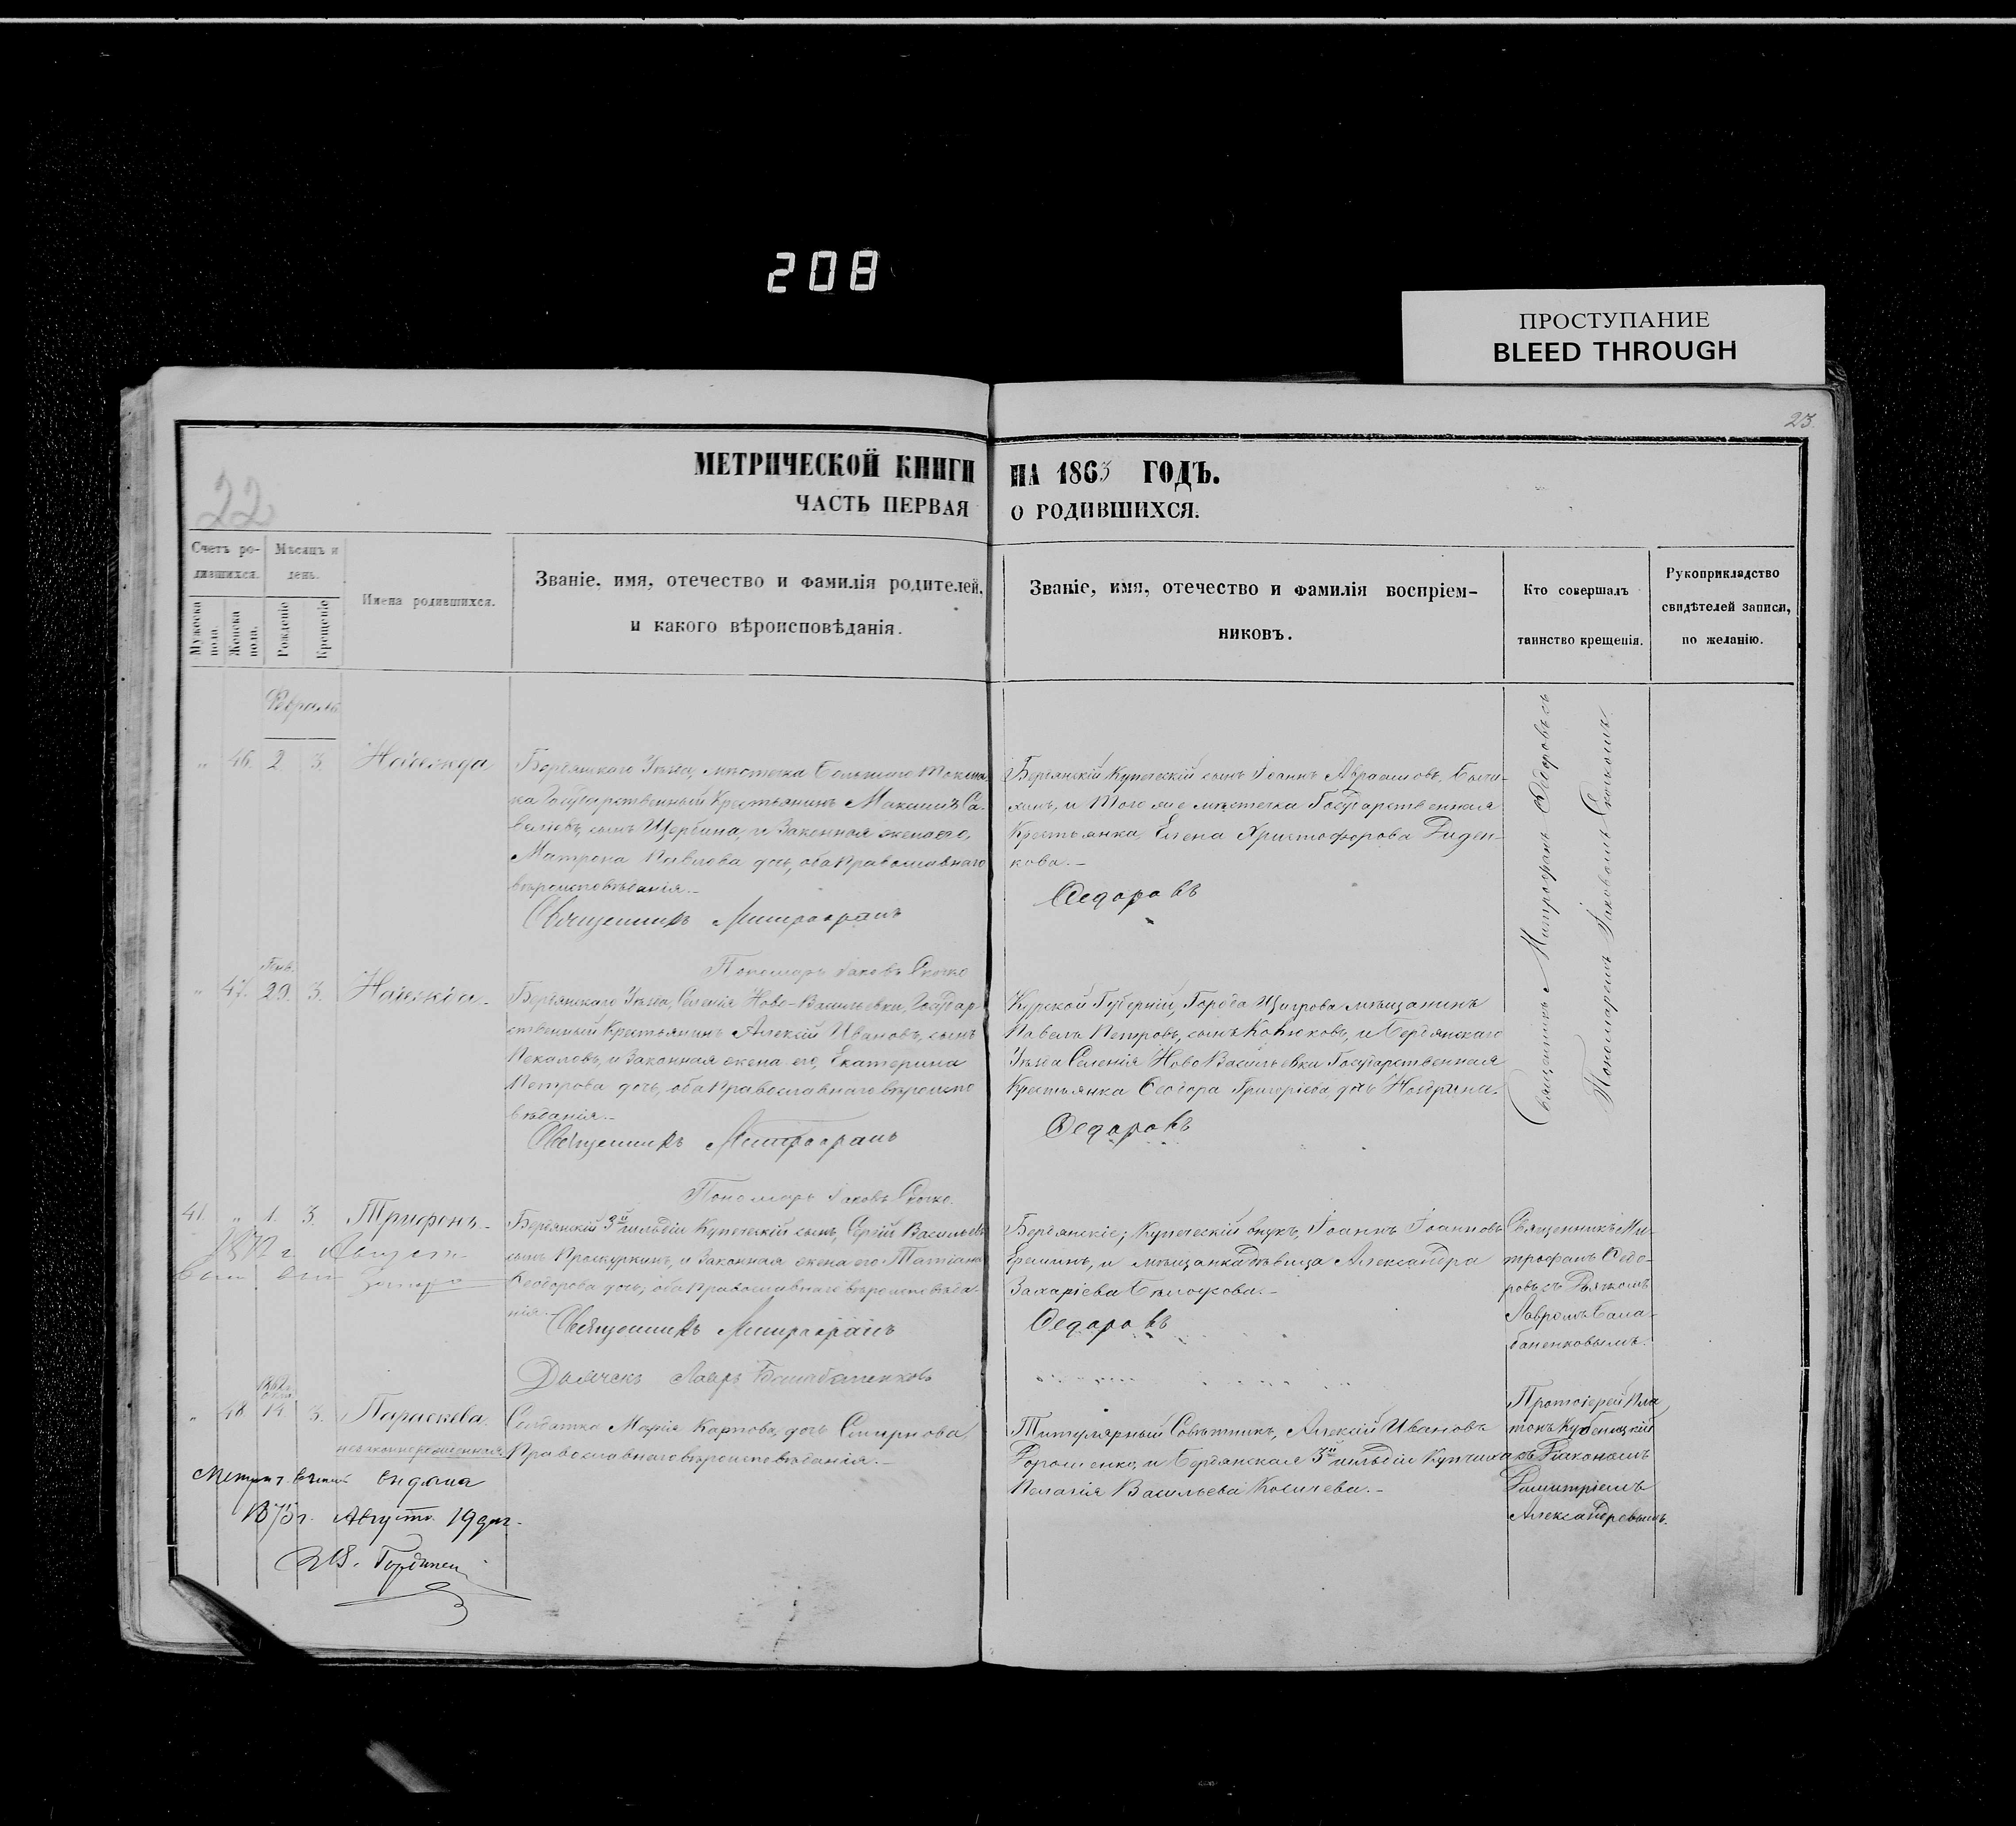 208
ПРОСТУПАНИЕ
BLEED THROUGH
23.
22
МЕТРИЧЕСКОЙ КНИГИ НА 1863 ГОДЪ.
ЧАСТЬ ПЕРВАЯ О РОДИВШИХСЯ.
Счетъ ро-
дившихся.
Мѣсяцъ и
день.
Мужеска
пола.
Женска
пола.
Рожденіе
Крещеніе
Имена родившихся.
Званіе, имя, отечество и фамилія родителей,
и какого вѣроисповѣданія.
Званіе, имя, отечество и фамилія воспріем-
никовъ.
Кто совершалъ
таинство крещенія.
Рукоприкладство
свидѣтелей записи,
по желанію.
Февраль
„ 46. 2 3. Надежда
Бердянскаго Уѣзда, мѣстечка Большаго Токма-
ка Государственный Крестьянинъ Максимъ Са-
веліевъ, сынъ Щербина и Законная жена его,
Матрона Павлова дочь, оба Православнаго
вѣроисповѣданія.–
Священникъ Митрофанъ
Пономарь Іаковъ
Бердянскій Купеческій сынъ Іоаннъ Авраамовъ,
и того же мѣстечка Государственная
Крестьянка Елена Христофорова Диден-
кова.–
Федоровъ
Священникъ Митрофанъ Федоровъ съ
Пономаремъ Іаковомъ
„ 47. Янв. 29. 3. Надежда.
Бердянскаго Уѣзда, Селенія Ново-Васильевки, Государ-
ственный Крестьянинъ Алексій Ивановъ, сынъ
и Законная жена его, Екатерина
Петрова дочь, оба Православнаго вѣроиспо-
вѣданія.–
Священникъ Митрофанъ
Пономарь Іаковъ
Курской Губерніи, Города Щигрова мѣщанинъ
Павелъ Петровъ, сынъ и Бердянскаго
Уѣзда Селенія Ново Васильевки Государственная
Крестьянка Феодора Григоріева дочь Ноздрина.
Федоровъ
41. „ 1. 3. Трифонъ.
Бердянскій 3й гильдіи Купеческій сынъ, Сергій Васильевъ
сынъ Проскуркинъ, и Законная жена его Татіана
Феодорова дочь; оба Православнаго вѣроисповѣда-
нія.–
Священникъ Митрофанъ
Дьячекъ Лавръ Балабаненковъ
Бердянскіе; Купеческій внукъ, Іоаннъ Іоанновъ
Ереминъ, и мѣщанка дѣвица Александра
Захаріева
Федоровъ
Священникъ Ми-
трофанъ Федо-
ровъ съ Дьячкомъ
Лавромъ Бала-
баненковымъ.
„ 48. 1862. 14. 3. Параскева.
незаконнорожденная.
Солдатка Марія Карпова, дочь Смирнова
Православнаго вѣроисповѣданія.–
Титулярный Совѣтникъ, Алексій Ивановъ
Дорошенко, и Бердянская 3й гильдіи Купчиха
Пелагія Васильева Косичева.–
Протоіерей Пла-
тонъ
съ Діакономъ
Димитріемъ
Александровымъ.
выдана
1875 г. Августа 19 дня.